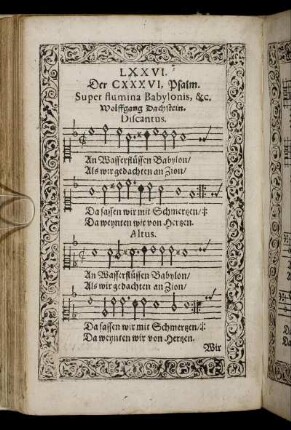 LXXVI.
Der CXXXVI. Psalm.
Super flumina Babylonis, &c.
Wolffgang Dachstein.
Discantus.
An Wasserflüssen Babylon/
Als wir gedachten an Zion/
Da sassen wir mit Schmertzen/
Da weynten wir von Hertzen.
Altus.
An Wasserflüssen Babylon/
Als wir gedachten an Zion/
Da sassen wir mit Schmertzen/
Da weynten wir von Hertzen.
Wir